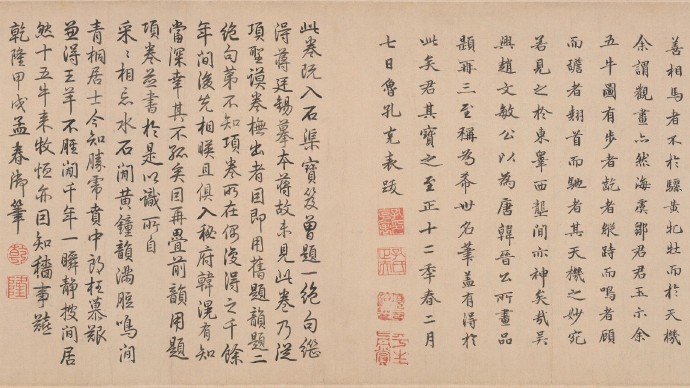 善相馬者不於驪黃牝牡而於天機
余謂觀畫亦然海虞鄒君君玉示余
五牛圖有步者齕者縱跱而鳴者顧
而者翹首而馳者其天機之妙宛
若見之於東皐西壟間亦神矣哉吳
興趙文敏公以為唐韓晉公所畫品
題再三至稱為希世名筆蓋有得於
此矣君其寶之至正十二年春二月
七日魯孔克表跋
此卷既入石渠寶笈曾題一絕句繼
得蔣廷錫摹本蔣故未見此卷乃從
項聖謨卷橅出者因即用舊題韻題二
絕句第不知項卷所在偶復得之千餘
年間後先相暎且俱入秘府韓滉有知
當深幸其不孤矣因再疊前韻用題
項卷並書於是以識所自
采采相忘水石間黃鐘韻滿脰鳴閒
青桐居士今知勝常賁中郎枉慕艱
並得王羊不脛閒千年一瞬靜披間居
然十五牛來牧恆亦因知穡事艱
乾隆甲戌孟春御筆
乾隆